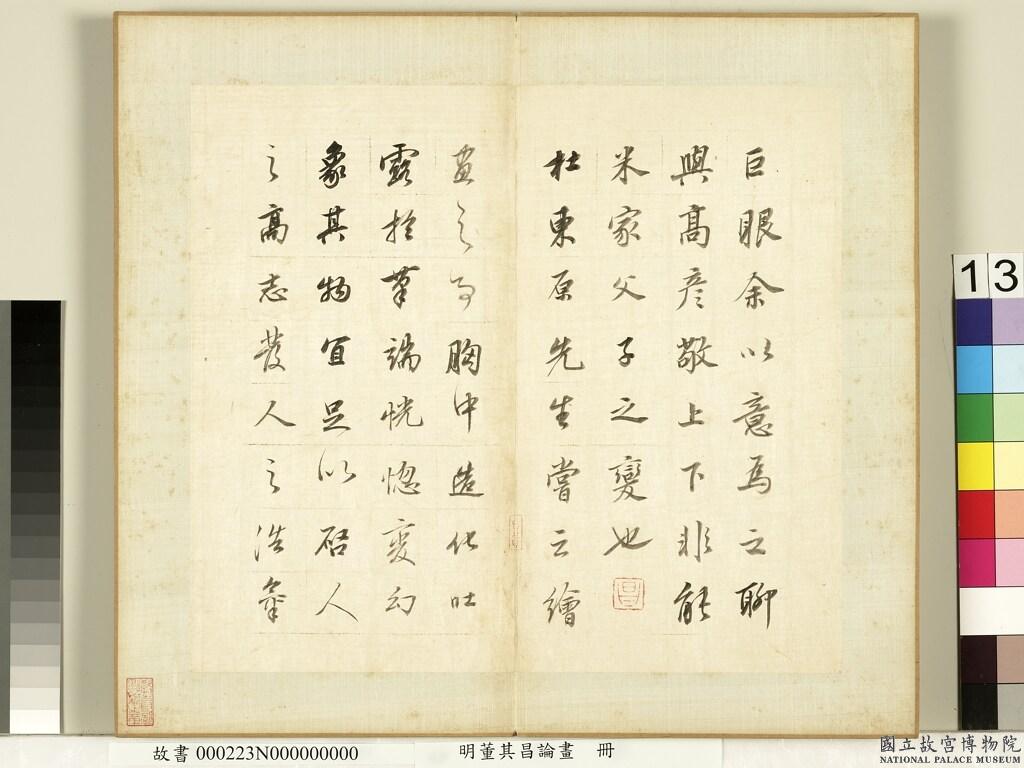 巨眼余以意為之聊
與高彥敬上下非能
米家父子之變也
杜東原先生嘗云繪
畫之事胸中造化吐
露於筆端怳惚變幻
象其物宜足以啓人
之高志發人之浩氣
13
故書 000223N000000000
明董其昌論畫 冊
國立故宮博物院
NATIONAL PALACE MUSEUM